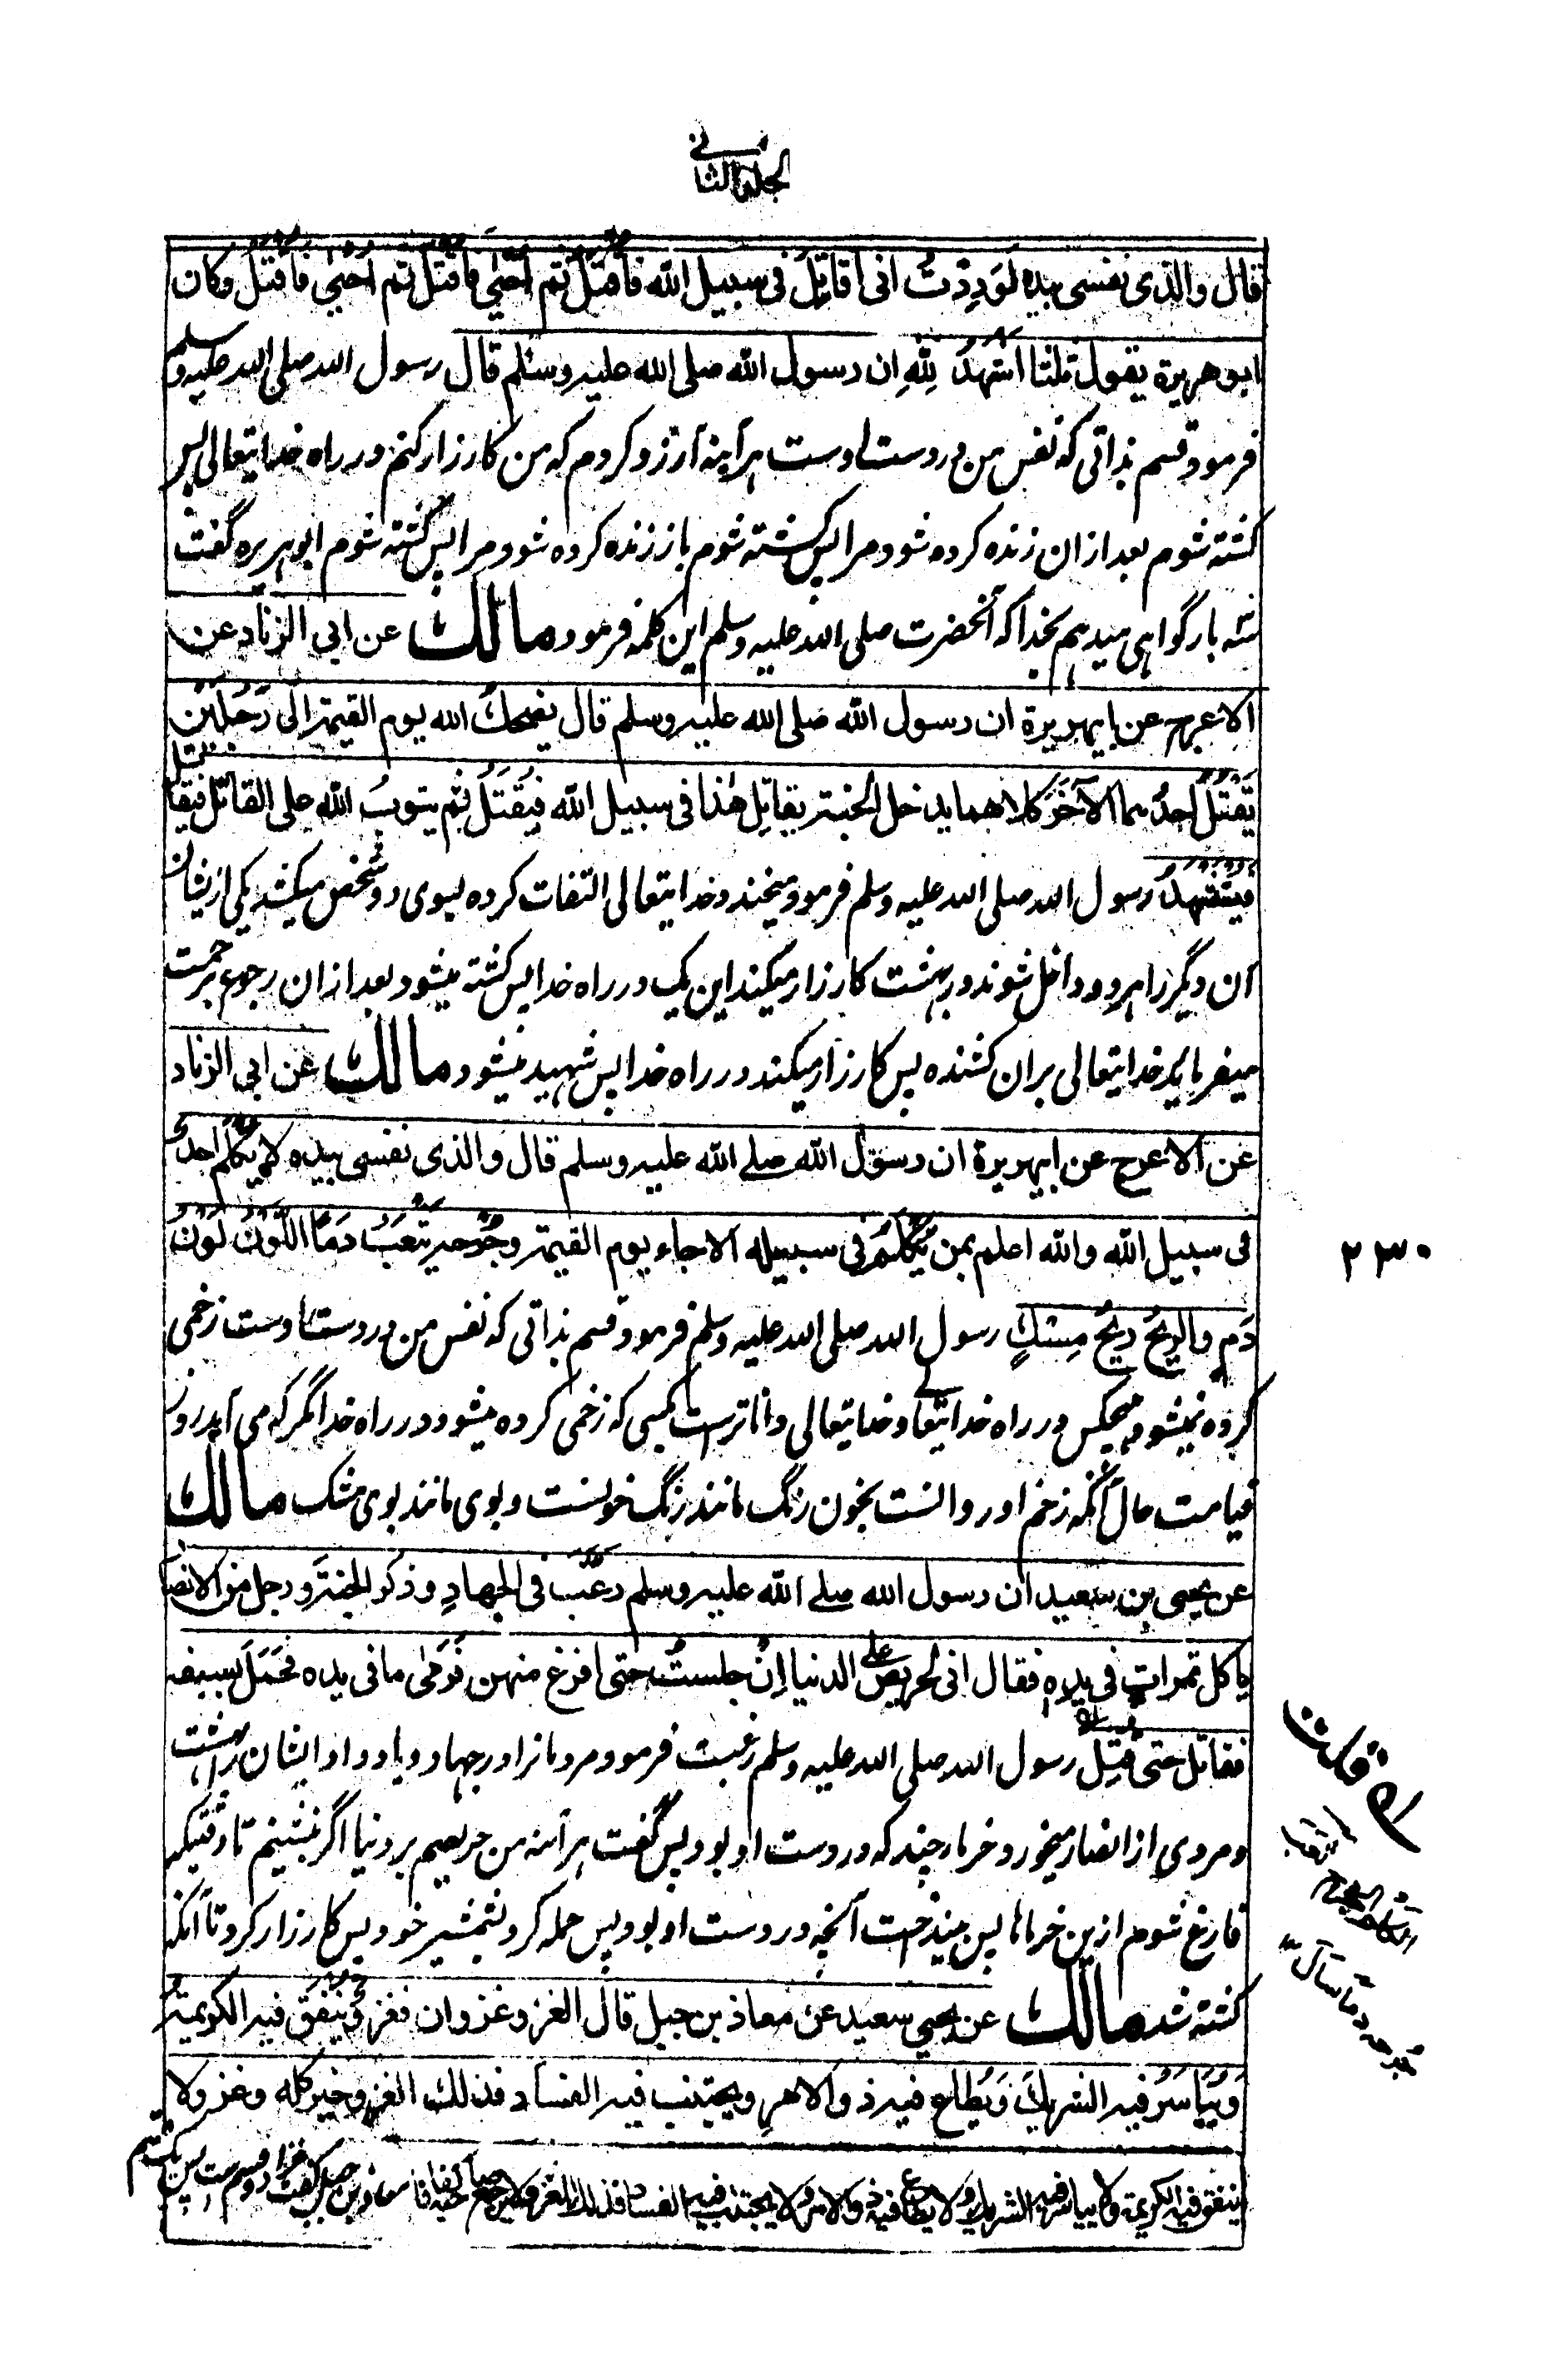 الجلد الثانی
قال والذی نفسی بیده لَوَدِدْتُ انی اُقاتِلُ فی سبیل الله فَاُقْتَلُ ثم اُحْیٰی فَاُقْتَلُ ثم اُحْیٰی فَاُقْتَلُ وکان
ابو هریرة یقول ثلثا اَشْهَدُ لِلّٰهِ ان رسول الله صلی الله علیه وسلم قال رسول الله صلی الله علیه وسلم
فرمود قسم بذاتی که نفس من در دست اوست هر آینه آرزو کردم که من کارزار کنم در راه خدا یتعالی پس
کشته شوم بعد ازان زنده کرده شود مرا پس کشته شوم باز زنده کرده شود مرا پس کشته شوم ابو هریره گفت
سه بار گواهی میدهم بخدا که آنحضرت صلی الله علیه وسلم این کلمه فرمود مالك عن ابی الزناد عن
الاعرج عن ابیهریرة ان رسول الله صلی الله علیه وسلم قال یضحكُ الله یوم القیمة الی رَجُلَیْن
یَقْتُلُ احدُهما الآخَرَ کلاهما یدخل الجنة یقاتِل هٰذا فی سبیل الله فیُقْتَلُ ثم یتوبُ الله علی القاتل فیقاتل
فَیُسْتَشْهَدُ رسول الله صلی الله علیه وسلم فرمود میخندد خدا یتعالی التفات کرده بسوی دو شخص میکشد یکی از ایشان
آن دیگر را هر دو داخل شوند در بهشت کارزار میکند این یک در راه خدا پس کشته میشود بعد ازان رجوع برحمت
میفرماید خدا یتعالی بران کشنده پس کارزار میکند در راه خدا پس شهید میشود مالك عن ابی الزناد
عن الاعرج عن ابیهریرة ان رسول الله صلے الله علیه وسلم قال والذی نفسی بیده لا یُکْلَمُ احدٌ
فی سبیل الله والله اعلم بمن یُکْلَمُ فی سبیله الا جاء یوم القیمة وجُرْحه یَثْعَبُ دَمًا اللَّوْنُ لَوْنُ
دَمٍ والرِیْحُ رِیْحُ مِسْكٍ رسول الله صلی الله علیه وسلم فرمود قسم بذاتی که نفس من در دست اوست زخمی
کرده نمیشود هیچکس در راه خدا یتعالے و خدا یتعالی دانا ترست بکسی که زخمی کرده میشود در راه خدا مگر که می آید روز
قیامت حال آنکه زخم او روانست بخون رنگ مانند رنگ خونست و بوی مانند بوی مشک مالك
عن یحیی بن سعید ان رسول الله صلے الله علیه وسلم رَغَّبَ فی الجهادِ وذکر الجنةَ ورجل من الانصار
یاکل تمراتٍ فی یدهِ فقال انی لحریصٌ علی الدنیا اِنْ جلستُ حتی افرغ منهن فَرَمٰی ما فی یده فحَمَلَ بسیفه
فقاتل حتی قُتِلَ رسول الله صلی الله علیه وسلم رغبت فرمود مردمانرا در جهاد و یاد داد ایشان را بهشت
و مردی از انصار میخورد خرما چند که در دست او بود پس گفت هر آئنه من حریصم بر دنیا اگر بنشینم تا وقتیکه
فارغ شوم ازین خرماها پس بینداخت آنچه در دست او بود پس حمله کرد بشمشیر خود پس کارزار کرد تا آنکه
کشته شد مالك عن یحیی سعید عن معاذ بن جبل قال الغزو غزوان فغزوٌ یُنْفَقُ فیه الکریمةُ
وَیُیَاسَرُ فیه الشریكُ وَیُطَاع فیه ذو الامرِ ویجتنب فیه الفساد فذلك الغزو خیر کله وغزو لا
ینفق فیه الکریمة ولا ییاسر فیه الشریك ولا یطاع فیه ذو الامر ولا یجتنب فیه الفساد فذلك الغزو لا یرجع صاحبه کفافا معاذ بن جبل گفت غزا دو قسم ست پس یک قسم
۲۳۰